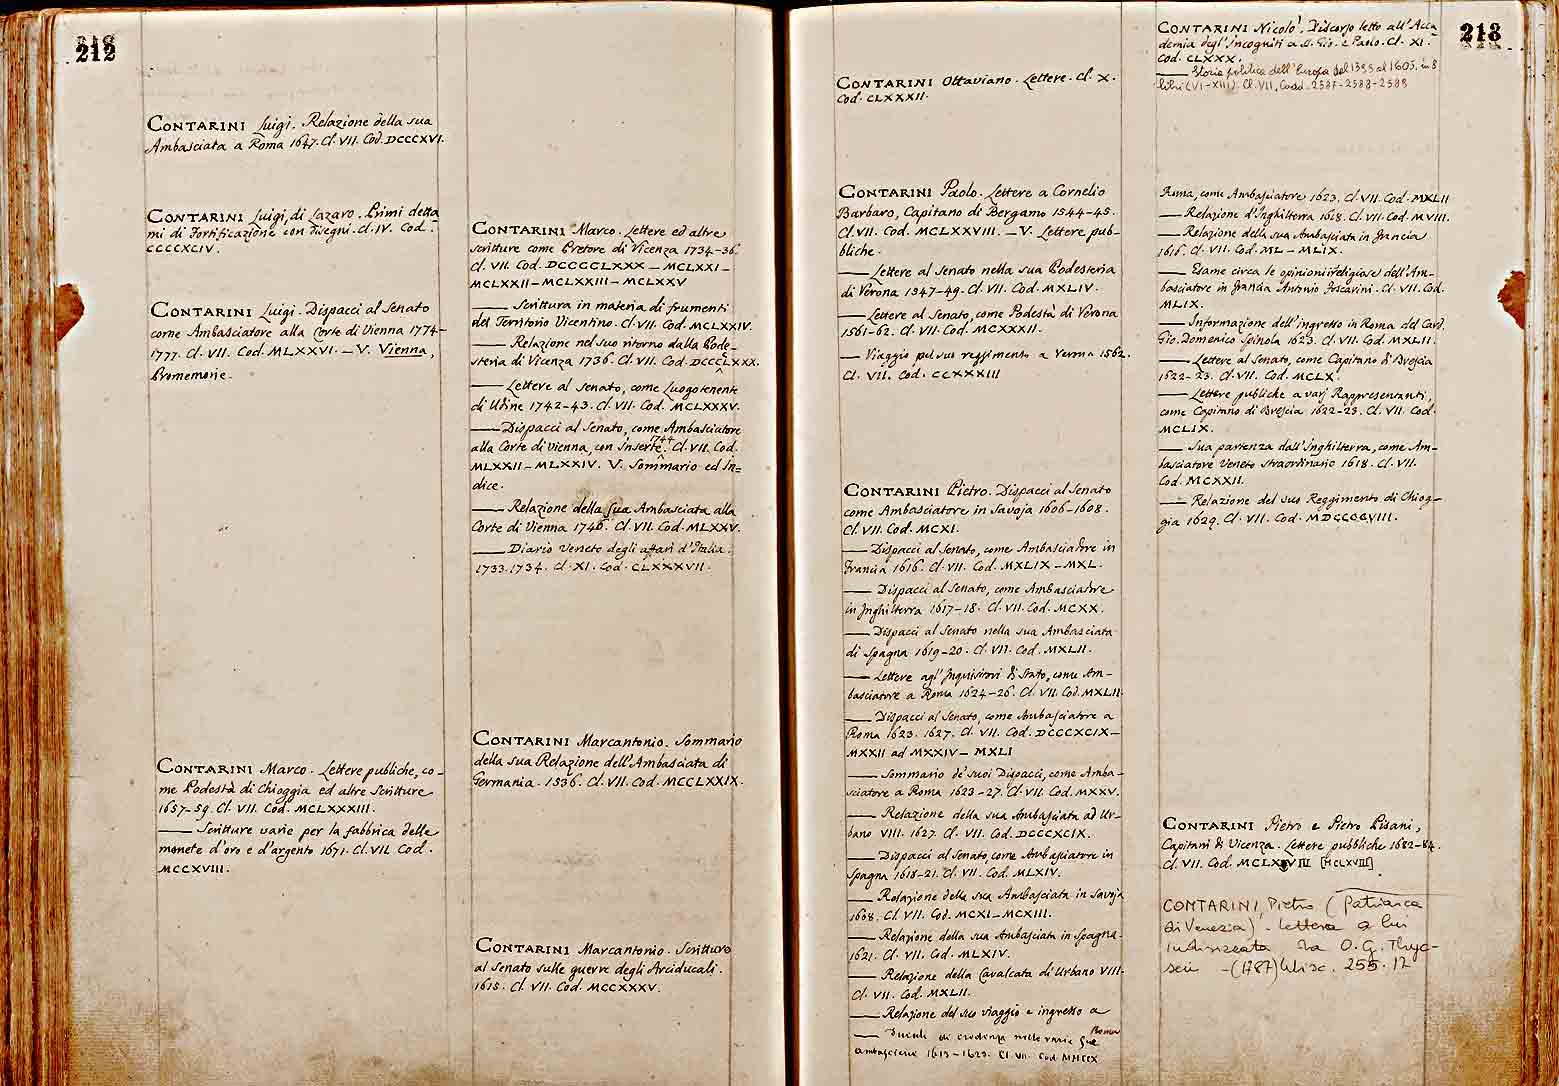 212
CONTARINI Luigi. Relazione della sua
Ambasciata a Roma 1647. Cl. VII. Cod. DCCCXVI.
CONTARINI Luigi, di Lazaro. Primi detta
mi di Fortificazione con disegni. Cl. IV. Cod.
CCCCXCIV.
CONTARINI Luigi. Dispacci al Senato
come Ambasciatore alla Corte di Vienna 1774-
1777. Cl. VII. Cod. MLXXVI. – V. Vienna,
Promemorie.
CONTARINI Marco. Lettere publiche, co-
me Podestà di Chioggia ed altre Scritture
1657-59. Cl. VII. Cod. MCLXXXIII.
—— Scritture varie per la fabbrica delle
monete d'oro e d'argento 1671. Cl. VII. Cod.
MCCXVIII.
CONTARINI Marco. Lettere ed altre
scritture come Pretore di Vicenza 1734-36.
Cl. VII. Cod. DCCCCLXXX – MCLXXI –
MCLXXII – MCLXXIII – MCLXXV
—— Scrittura in materia di frumenti
del Territorio Vicentino. Cl. VII. Cod. MCLXXIV.
—— Relazione nel suo ritorno dalla Pode-
steria di Vicenza 1736. Cl. VII. Cod. DCCCCLXXX.
—— Lettere al Senato, come Luogotenente
di Udine 1742-43. Cl. VII. Cod. MCLXXXV.
—— Dispacci al Senato, come Ambasciatore
alla Corte di Vienna, con inserte 1744. Cl. VII. Cod.
MLXXII – MLXXIV. V. Sommario ed In=
dice.
—— Relazione della sua Ambasciata alla
Corte di Vienna 1746. Cl. VII. Cod. MLXXV.
—— Diario Veneto degli affari d'Italia.
1733.1734. Cl. XI. Cod. CLXXXVII.
CONTARINI Marcantonio. Sommario
della sua Relazione dell'Ambasciata di
Germania. 1536. Cl. VII. Cod. MCCLXXIX.
CONTARINI Marcantonio. Scritture
al Senato sulle guerre degli Arciducali.
1615. Cl. VII. Cod. MCCXXXV.
CONTARINI Ottaviano. Lettere. Cl. X.
Cod. CLXXXII.
CONTARINI Paolo. Lettere a Cornelio
Barbaro, Capitano di Bergamo 1544-45.
Cl. VII. Cod. MCLXXVIII. – V. Lettere pub-
bliche.
—— Lettere al Senato nella sua Podesteria
di Verona 1547-49. Cl. VII. Cod. MXLIV.
—— Lettere al Senato, come Podestà di Verona
1561-62. Cl. VII. Cod. MCXXXII.
— Viaggio pel suo reggimento a Verona 1562.
Cl. VII. Cod. CCXXXIII
CONTARINI Pietro. Dispacci al Senato
come Ambasciatore in Savoja 1606-1608.
Cl. VII. Cod. MCXI.
—— Dispacci al Senato, come Ambasciatore in
Francia 1616. Cl. VII. Cod. MXLIX – MXL.
—— Dispacci al Senato, come Ambasciatore
in Inghilterra 1617-18. Cl. VII. Cod. MCXX.
—— Dispacci al Senato nella sua Ambasciata
di Spagna 1619-20. Cl. VII. Cod. MXLII.
—— Lettere agl' Inquisitori di Stato, come Am-
basciatore a Roma 1624-26. Cl. VII. Cod. MXLII.
—— Dispacci al Senato, come Ambasciatore a
Roma 1623. 1627. Cl. VII. Cod. DCCCXCIX –
MXXII ad MXXIV – MXLI
—— Sommario de' suoi Dispacci, come Amba-
sciatore a Roma 1623-27. Cl. VII. Cod. MXXV.
—— Relazione della sua Ambasciata ad Ur-
bano VIII. 1627. Cl. VII. Cod. DCCCXCIX.
—— Dispacci al Senato, come Ambasciatore in
Spagna 1618-21. Cl. VII. Cod. MLXIV.
—— Relazione della sua Ambasciata in Savoja
1608. Cl. VII. Cod. MCXI – MCXIII.
—— Relazione della sua Ambasciata in Spagna.
1621. Cl. VII. Cod. MLXIV.
—— Relazione della Cavalcata di Urbano VIII.
Cl. VII. Cod. MXLII.
—— Relazione del suo viaggio e ingresso a
Roma
—— Ducali di credenza nelle varie sue
ambascierie 1613-1623. Cl. VII. Cod.
213
CONTARINI Nicolò. Discorso letto all'Acca
demia degl' Incogniti a S. Gio. e Paolo. Cl. XI.
Cod. CLXXX.
—— Storia politica dell'Europa dal 1595 al 1605. in 8
libri (VI-XIII). Cl. VII, Codd. 2587-2588-2588
Roma, come Ambasciatore 1623. Cl. VII. Cod. MXLII
—— Relazione d'Inghilterra 1618. Cl. VII. Cod. MVIII.
—— Relazione della sua Ambasciata in Francia
1616. Cl. VII. Cod. ML – MLIX.
—— Esame circa le opinioni religiose dell'Am-
basciatore in Francia Antonio Foscarini. Cl. VII. Cod.
MLIX.
—— Informazione dell'ingresso in Roma del Card.
Gio. Domenico Spinola 1623. Cl. VII. Cod. MXLII.
—— Lettere al Senato, come Capitano di Brescia
1622-23. Cl. VII. Cod. MCLX.
—— Lettere publiche a varj Rappresentanti,
come Capitano di Brescia 1622-23. Cl. VII. Cod.
MCLIX.
—— Sua partenza dall'Inghilterra, come Am-
basciatore Veneto straordinario 1618. Cl. VII.
Cod. MCXXII.
—— Relazione del suo Reggimento di Chiog-
gia 1629. Cl. VII. Cod. MDCCCCVIII.
CONTARINI Pietro e Pietro Pisani,
Capitani di Vicenza. Lettere pubbliche 1682-84.
Cl. VII. Cod. MCLXVIII [MCLXVIII]
CONTARINI, Pietro (Patriarca
di Venezia). Lettera a lui
indirizzata da O. G. Thyc-
sen – (1787) Misc. 255. 12